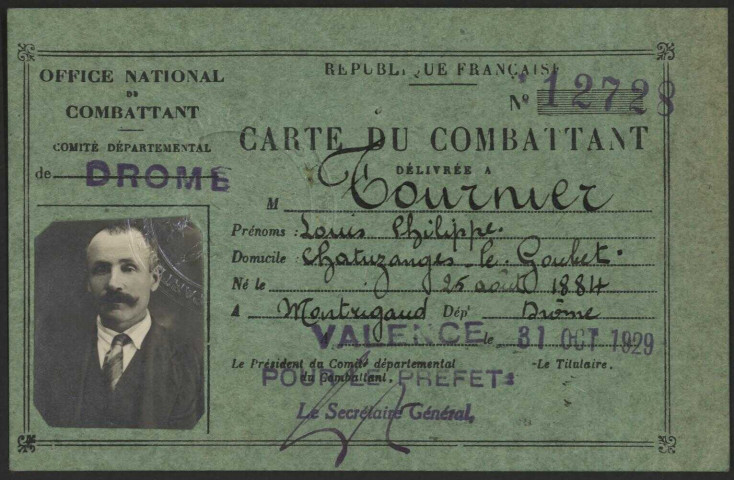 OFFICE NATIONAL
DU
COMBATTANT
COMITÉ DÉPARTEMENTAL
de DROME
REPUBLIQUE FRANÇAISE
No 12728
CARTE DU COMBATTANT
DÉLIVRÉE A
M Tournier
Prénoms : Louis Philippe.
Domicile : Chatuzanges-le-Goubet.
Né le 25 août 1884
A Montrigaud Dépt Drôme
VALENCE le 31 OCT 1929
Le Président du Comité départemental
du Combattant,
-Le Titulaire.
POUR LE PREFET:
Le Secrétaire Général,